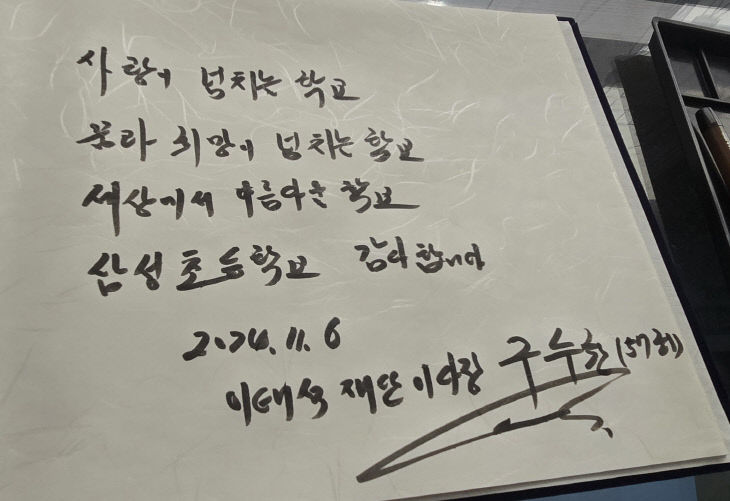 사랑이 넘치는 학교
꿈과 희망이 넘치는 학교
세상에서 아름다운 학교
삼성초등학교 감사합니다
2024. 11. 6
이태석 재단 이사장 구수환 (57회)